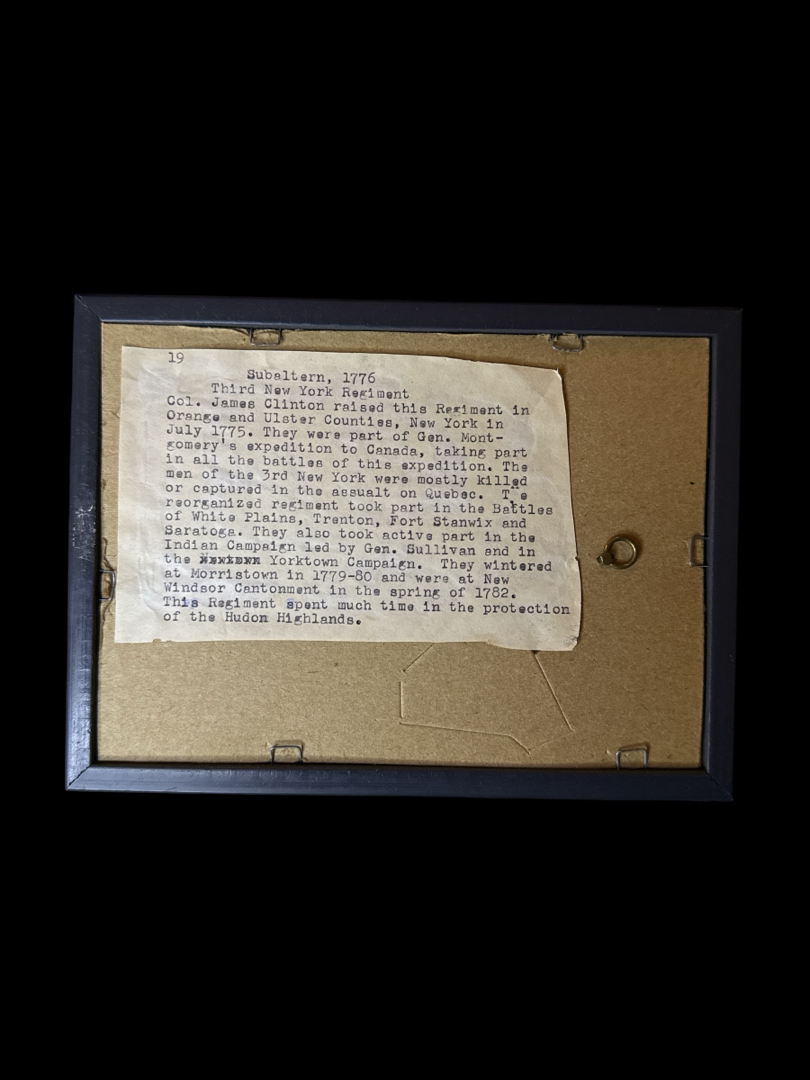 19
Subaltern, 1776
Third New York Regiment
Col. James Clinton raised this Regiment in
Orange and Ulster Counties, New York in
July 1775. They were part of Gen. Mont-
gomery's expedition to Canada, taking part
in all the battles of this expedition. The
men of the 3rd New York were mostly killed
or captured in the assualt on Quebec. The
reorganized regiment took part in the Battles
of White Plains, Trenton, Fort Stanwix and
Saratoga. They also took active part in the
Indian Campaign led by Gen. Sullivan and in
the Yorktown Campaign. They wintered
at Morristown in 1779-80 and were at New
Windsor Cantonment in the spring of 1782.
This Regiment spent much time in the protection
of the Hudon Highlands.